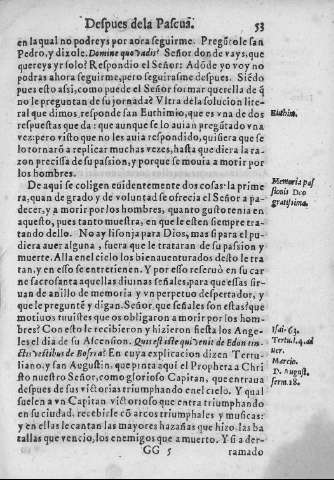 Despues dela Pascua. 53
en la qual no podreys por aora seguirme. Pregũtole san
Pedro, y dizole. Domine quo vadis? Señor donde vays, que
quereys yr solo? Respondio el Señor: Adõde yo voy no
podras ahora seguirme, pero seguirasme despues. Siẽdo
pues esto assi, como puede el Señor formar querella de q̃
no le preguntan de su jornada? Vltra de la solucion lite-
ral que dimos, responde san Euthimio, que es vna de dos
respuestas que da: que aunque se lo auian pregũtado vna
vez: pero visto que no les auia respondido, quisiera que se
lo tornarã a replicar muchas vezes, hasta que diera la ra-
zon precissa de su passion, y porque se mouia a morir por
los hombres.
De aqui se coligen euidentemente dos cosas: la prime
ra, quan de grado y de voluntad se ofrecia el Señor a pa-
decer, y a morir por los hombres, quanto gusto tenia en
aquesto, pues tanto muestra, en que le esten siempre tra-
tando dello. No ay lisonja para Dios, mas si para el pu-
diera auer alguna, fuera que le trataran de su passion y
muerte. Alla enel cielo los bienauenturados desto le tra-
tan, y en esso se entretienen. Y por esso reseruò en su car
ne sacrosanta aquellas diuinas señales, para que essas sir-
uan de anillo de memoria y vn perpetuo despertador, y
que le pregunte y digan. Señor, que señales son estas? que
motiuos tuuistes que os obligaron a morir por los hom-
bres? Con esto le recibieron y hizieron fiesta los Ange-
les el dia de su Ascension. Quis est iste qui venit de Edom tin-
ctis vestibus de Bosra? En cuya explicacion dizen Tertu-
liano, y san Augustin, que pinta aqui el Propheta a Chri
sto nuestro Señor, como glorioso Capitan, que entraua
despues de sus victorias triumphando enel cielo. Y qual
suelen a vn Capitan victorioso que entra triumphando
en su ciudad, recebirle cõ arcos triumphales y musicas:
y en ellas le cantan las mayores hazañas que hizo: las ba
tallas que vencio, los enemigos que a muerto. Y si a der-
GG 5 ramado
Euthim.
Memoria pas
sionis Deo
gratissima.
Isai. 63.
Tertu. l. 4. ad
uer.
Marcio.
D. August.
serm. 18.